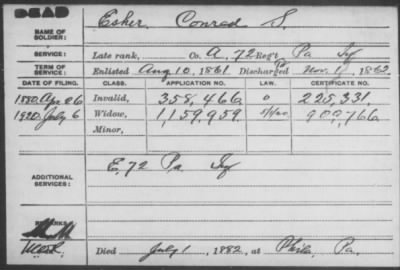 DEAD
NAME OF SOLDIER: Esher, Conrad S.
SERVICE: Late rank, Co. A, 72 Reg't Pa Inf
TERM OF SERVICE: Enlisted Aug 10, 1861 Discharged Nov. 1, 1862
DATE OF FILING. CLASS. APPLICATION NO. LAW. CERTIFICATE NO.
1880 Apr 26 Invalid, 358,466 0 225,331
1920 July 6 Widow, 1,159,959 902,766
Minor,
ADDITIONAL SERVICES: E, 72 Pa Inf
REMARKS
Died July 1, 1882, at Phila, Pa.